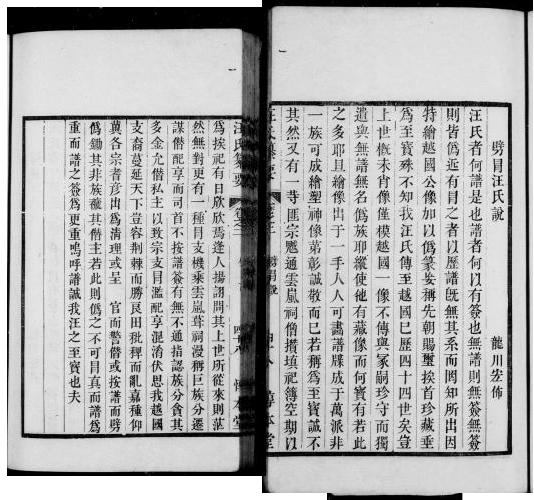 劈冒汪氏說
龍川 佈
汪氏者何譜是也譜者何以有簽也無譜則無簽無簽
則皆僞近有冒之者以歷譜旣無其系而罔知所出因
特繪越國公像加以僞篆妄稱先朝賜璽挨首珍藏垂
爲至寶殊不知我汪氏傳至越國巳歷四十四世矣豈
上世槪未肖像僅模越國一像不傳與冢嗣珍守而獨
遺與無譜無名僞族耶縱使他有藏像而何寶有若此
之多耶且繪像出于一手人人可畵譜牒成于萬派非
一族可成繪塑神像第彰誠敬而巳若稱爲至寶誠不
其然又有一等匪宗魆通雲嵐祠僧揩填祀簿空期以
汪氏纂要
爲挨祀有日欣欣焉逢人揚詡問其上世所從來則茫
然無對更有一種冒支機乘雲嵐葺祠漫稱巨族分遷
謀僭配享而司首不按譜簽有無不通指認族分貪其
多金允僭私主以致宗支目濫配享混淆伏思我越國
支裔蔓延天下豈容荆棘而勝良田秕稗而亂嘉種仰
冀各宗者彥出爲清理或呈 官而警僭或按譜而劈
僞鋤其非族蘢其僭主若此則僞之不可冒眞而譜爲
重而譜之簽爲更重嗚呼譜誠我汪之至寶也夫